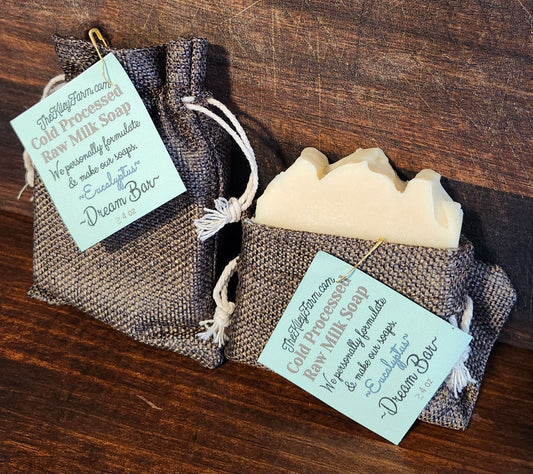 TheKleyFarm.com
Cold Processed
Raw Milk Soap
We personally formulate
& make our soaps.
~Eucalyptus~
~Dream Bar~
≥4 oz
TheKleyFarm.com
Cold Processed
Raw Milk Soap
We personally formulate
& make our soaps.
~Eucalyptus~
~Dream Bar~
≥4 oz